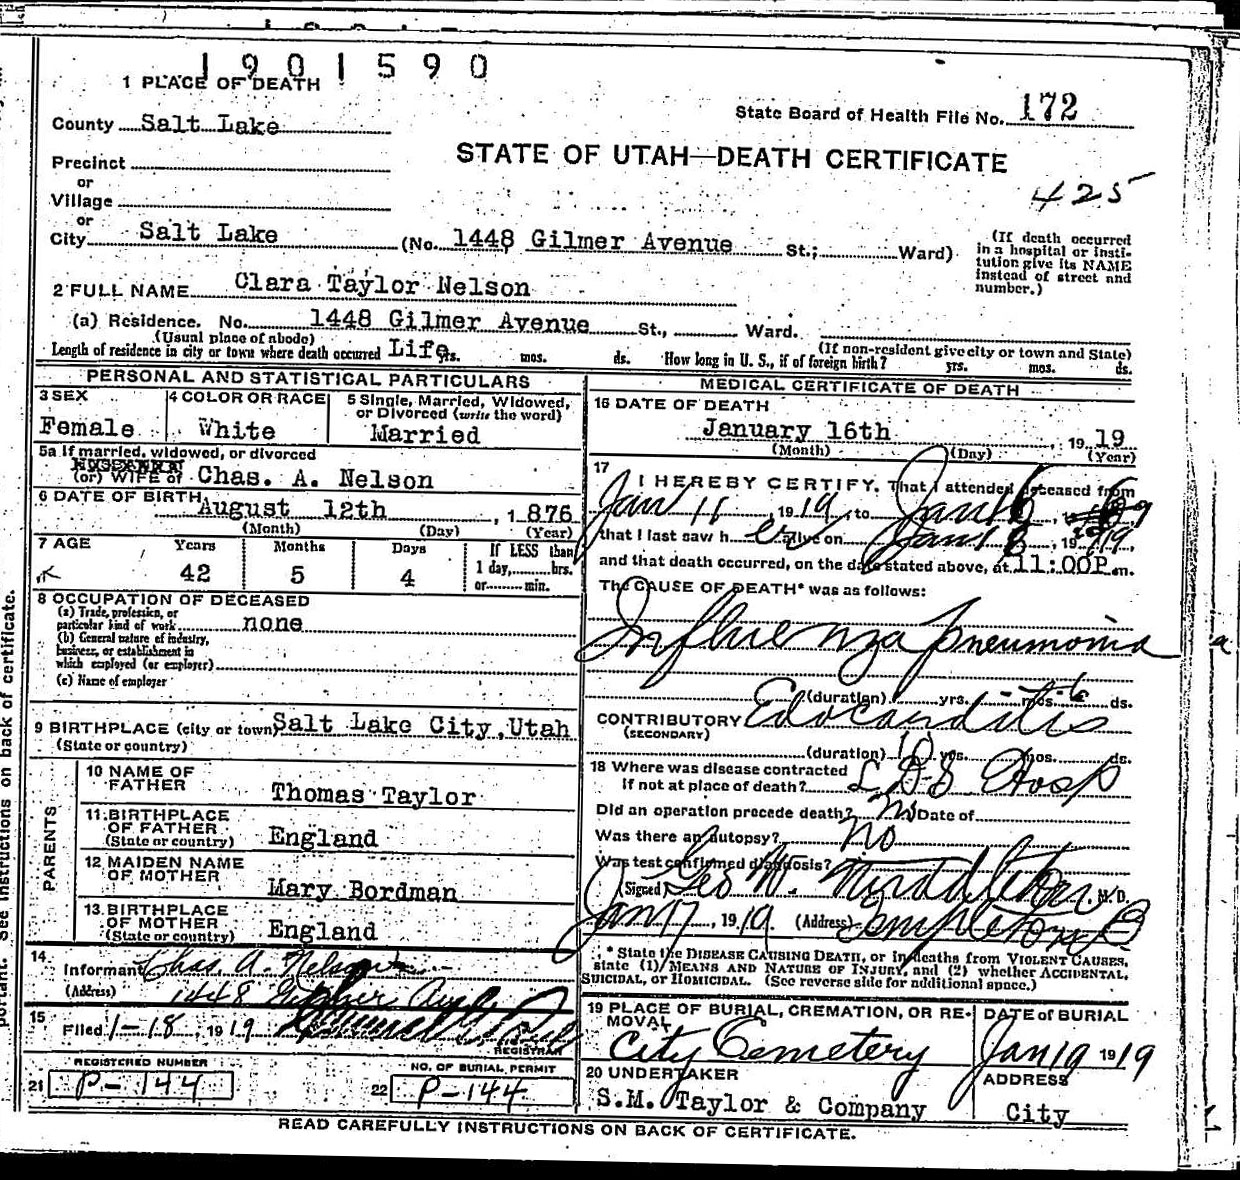 1901590
1 PLACE OF DEATH
State Board of Health File No. 172
County Salt Lake
STATE OF UTAH—DEATH CERTIFICATE
425
Precinct
or
Village
or
City Salt Lake (No. 1448 Gilmer Avenue St.; Ward)
(If death occurred in a hospital or insti-
tution give its NAME
instead of street and
number.)
2 FULL NAME Clara Taylor Nelson
(a) Residence. No. 1448 Gilmer Avenue St., Ward.
(Usual place of abode) (If non-resident give city or town and State)
Length of residence in city or town where death occurred Life yrs. mos. ds. How long in U. S., if of foreign birth? yrs. mos. ds.
PERSONAL AND STATISTICAL PARTICULARS
3 SEX 4 COLOR OR RACE 5 Single, Married, Widowed,
or Divorced (write the word)
Female White Married
5a If married, widowed, or divorced
(or) WIFE of Chas. A. Nelson
6 DATE OF BIRTH August 12th, 1876
(Month) (Day) (Year)
7 AGE Years Months Days If LESS than
1 day, hrs.
42 5 4 or min.
8 OCCUPATION OF DECEASED
(a) Trade, profession, or
particular kind of work none
(b) General nature of industry,
business, or establishment in
which employed (or employer)
(c) Name of employer
9 BIRTHPLACE (city or town) Salt Lake City, Utah
(State or country)
PARENTS
10 NAME OF
FATHER Thomas Taylor
11 BIRTHPLACE
OF FATHER
(State or country) England
12 MAIDEN NAME
OF MOTHER Mary Bordman
13 BIRTHPLACE
OF MOTHER
(State or country) England
14
Informant Chas. A. Nelson
(Address) 1448 Gilmer Ave
15
Filed 1-18, 1919
REGISTRAR
REGISTERED NUMBER NO. OF BURIAL PERMIT
21 P-144 22 P-144
MEDICAL CERTIFICATE OF DEATH
16 DATE OF DEATH
January 16th, 1919
(Month) (Day) (Year)
17
I HEREBY CERTIFY, That I attended deceased from
Jan 11, 1919, to Jan 16
that I last saw her alive on Jan 1, 1919,
and that death occurred, on the date stated above, at 11:00P.m.
The CAUSE OF DEATH* was as follows:
Influenza pneumonia
(duration) yrs. mos. 6 ds.
CONTRIBUTORY Edocarditis
(SECONDARY)
(duration) 10 yrs. mos. ds.
18 Where was disease contracted
if not at place of death? L D S Hosp
Did an operation precede death? No Date of
Was there an autopsy? No
Was test confirmed diagnosis?
(Signed) Geo W. Middleton, M. D.
Jan 17, 1919 (Address) Templeton B
* State the DISEASE CAUSING DEATH, or in deaths from VIOLENT CAUSES,
state (1) MEANS AND NATURE OF INJURY, and (2) whether ACCIDENTAL,
SUICIDAL, or HOMICIDAL. (See reverse side for additional space.)
19 PLACE OF BURIAL, CREMATION, OR RE- DATE of BURIAL
MOVAL
City Cemetery Jan 19 1919
20 UNDERTAKER ADDRESS
S.M. Taylor & Company City
READ CAREFULLY INSTRUCTIONS ON BACK OF CERTIFICATE.
portant. See instructions on back of certificate.